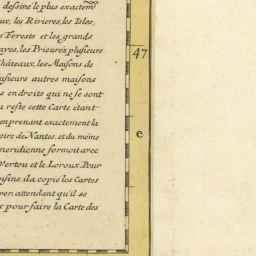 dessine le plus exactem̃
ux, les Rivieres, les Isles,
s Forests et les grands
ayes, les Prieuréz plusieurs
hâteaux, les Maisons de
usieurs autres maisons
s endroits qui ne se sont
u reste cette Carte étant
en prenant exactement la
oire de Nantes, et du même
meridienne formoit avec
Vertou et le Loroux. Pour
oisins il a copié les Cartes
en attendant qu'il se
t pour faire la Carte des
47
e